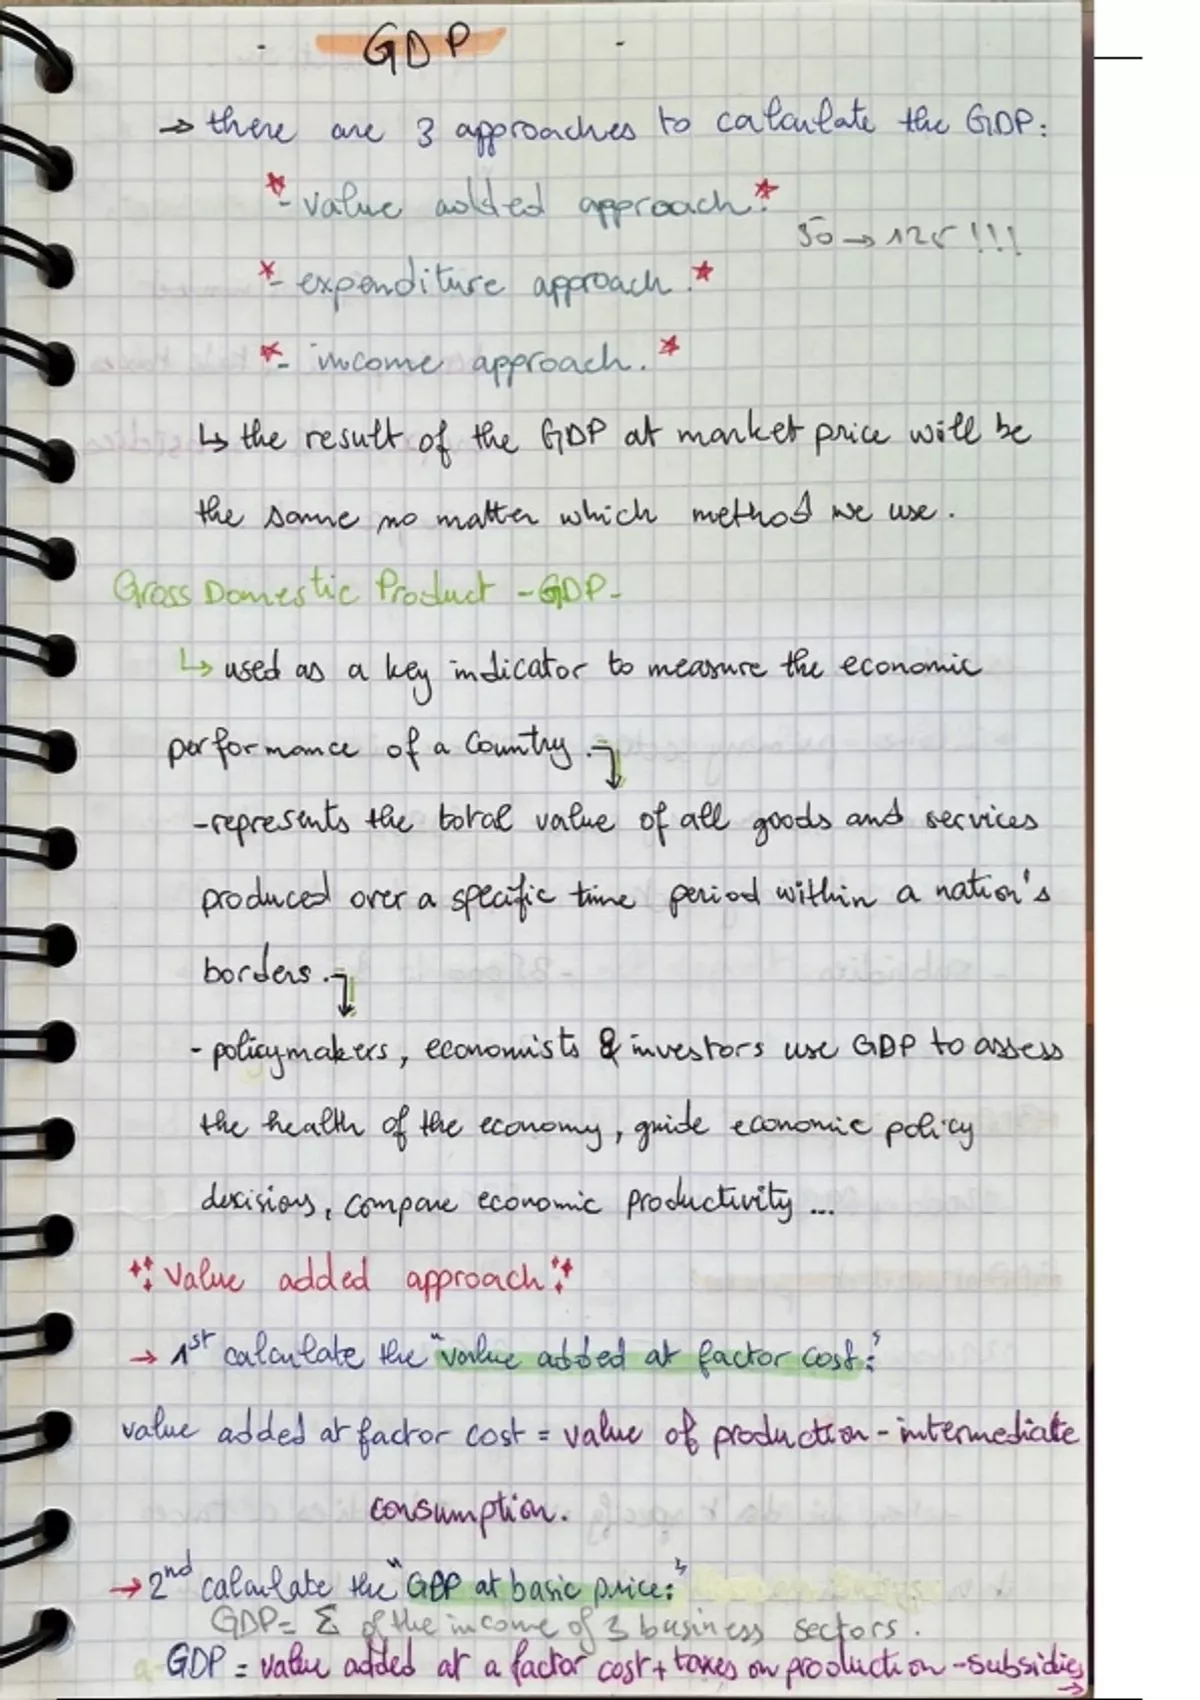 GDP
→ there are 3 approaches to calculate the GDP:
- value added approach.
50 → 125 !!!
- expenditure approach.
- income approach.
↳ the result of the GDP at market price will be
the same no matter which method we use.
Gross Domestic Product - GDP -
↳ used as a key indicator to measure the economic
performance of a country.
- represents the total value of all goods and services
produced over a specific time period within a nation's
borders.
- policymakers, economists & investors use GDP to assess
the health of the economy, guide economic policy
decisions, compare economic productivity ...
Value added approach
→ 1st calculate the "value added at factor cost:"
value added at factor cost = value of production - intermediate
consumption.
→ 2nd calculate the "GDP at basic price:"
GDP = Σ of the income of 3 business sectors.
GDP = value added at a factor cost + taxes on production - subsidies
→